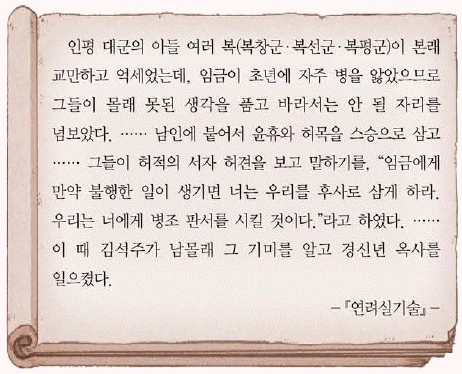 인평 대군의 아들 여러 복(복창군·복선군·복평군)이 본래
교만하고 억세었는데, 임금이 초년에 자주 병을 앓았으므로
그들이 몰래 못된 생각을 품고 바라서는 안 될 자리를
넘보았다. …… 남인에 붙어서 윤휴와 허목을 스승으로 삼고
…… 그들이 허적의 서자 허견을 보고 말하기를, “임금에게
만약 불행한 일이 생기면 너는 우리를 후사로 삼게 하라.
우리는 너에게 병조 판서를 시킬 것이다.”라고 하였다. ……
이 때 김석주가 남몰래 그 기미를 알고 경신년 옥사를
일으켰다.
-『연려실기술』-